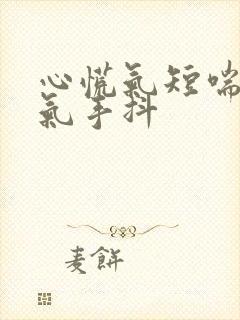 心慌氣短喘
氣手抖
麦餅